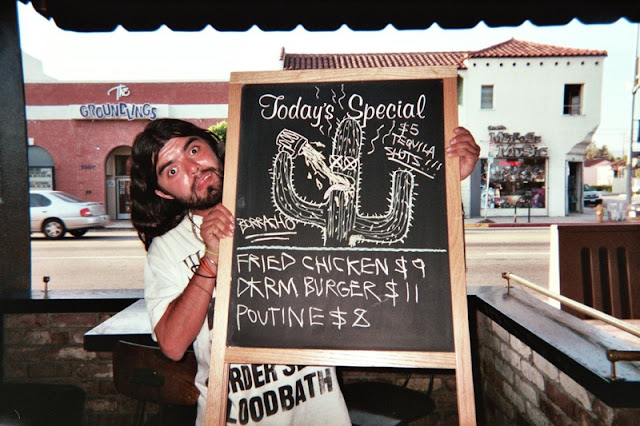 The
GROUNDLINGS
Today's Special
$5
TEQUILA
BORRACHO
FRIED CHICKEN $9
D★RM BURGER $11
POUTINE $8
BLOODBATH
MUSIC